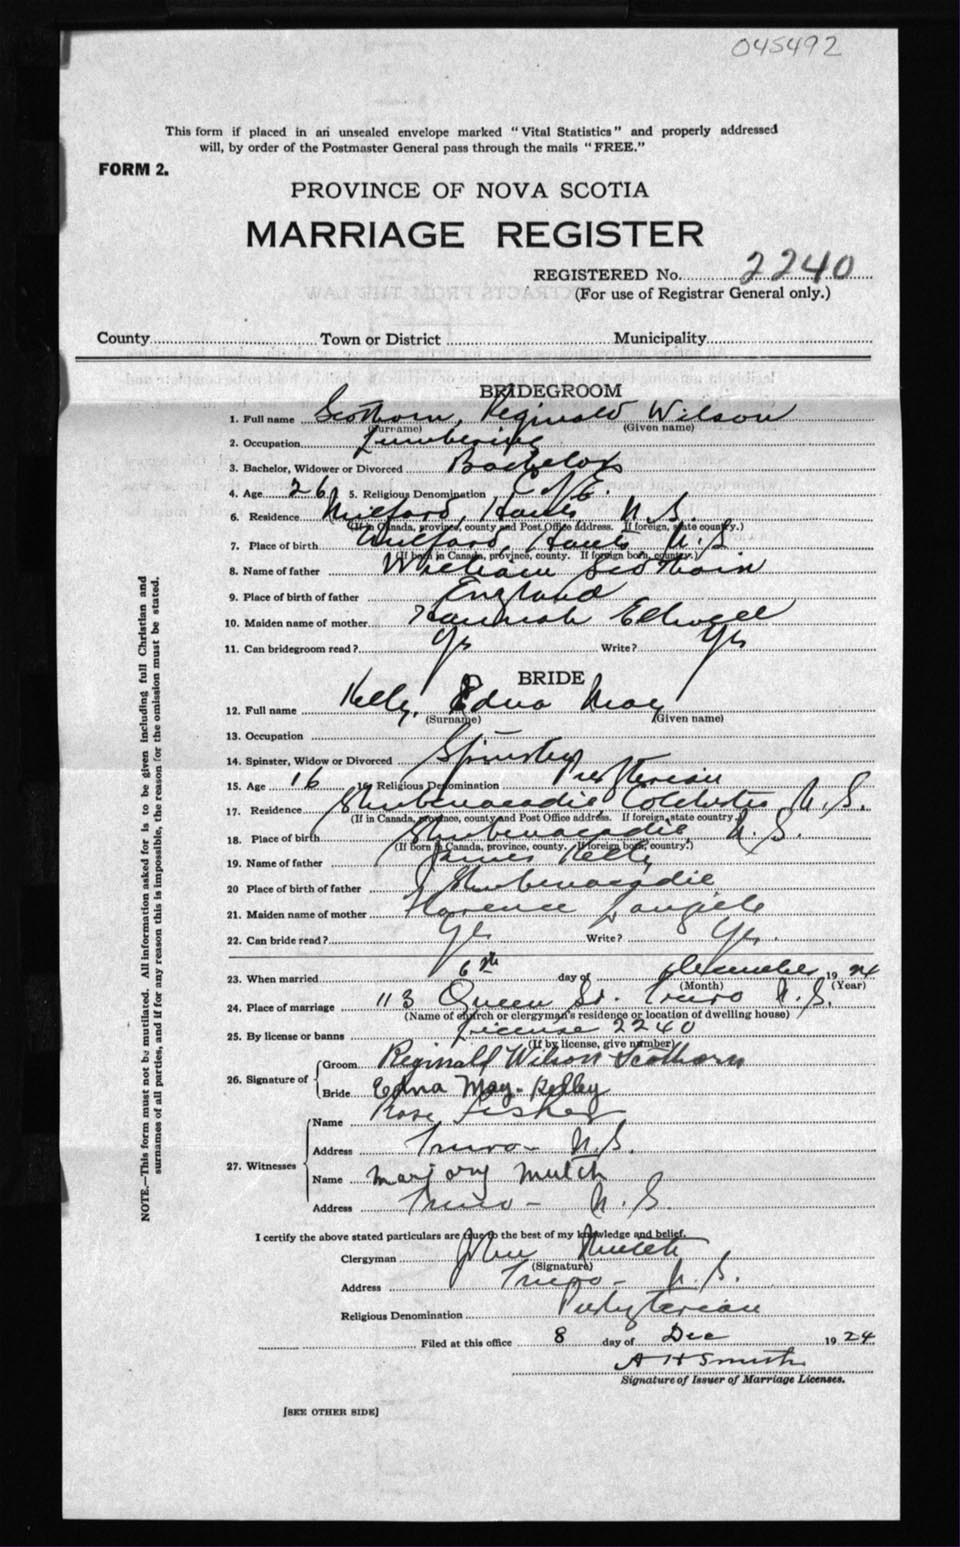 045492
This form if placed in an unsealed envelope marked "Vital Statistics" and properly addressed
will, by order of the Postmaster General pass through the mails "FREE."
FORM 2.
PROVINCE OF NOVA SCOTIA
MARRIAGE REGISTER
REGISTERED No. 2240
(For use of Registrar General only.)
County Town or District Municipality
BRIDEGROOM
1. Full name Scothorn, Reginald Wilson
(Surname) (Given name)
2. Occupation Lumbering
3. Bachelor, Widower or Divorced Bachelor
4. Age 26 5. Religious Denomination C of E.
6. Residence Milford, Hants N.S.
(If in Canada, province, county and Post Office address. If foreign, state country.)
7. Place of birth Milford, Hants N.S
(If born in Canada, province, county. If foreign born, country.)
8. Name of father William Scothorn
9. Place of birth of father England
10. Maiden name of mother Hannah
11. Can bridegroom read? Yes Write? Yes
BRIDE
12. Full name Kelly, Edna May
(Surname) (Given name)
13. Occupation
14. Spinster, Widow or Divorced Spinster
15. Age 16 16. Religious Denomination Presbyterian
17. Residence Shubenacadie Colchester N.S.
(If in Canada, province, county and Post Office address. If foreign, state country.)
18. Place of birth Shubenacadie N.S.
(If born in Canada, province, county. If foreign born, country.)
19. Name of father James Kelly
20 Place of birth of father Shubenacadie
21. Maiden name of mother Florence
22. Can bride read? Yes Write? Yes.
23. When married 6th day of December 1924
(Month) (Year)
24. Place of marriage 113 Queen St. Truro N.S.
(Name of church or clergyman's residence or location of dwelling house)
25. By license or banns License 2240
(If by license, give number)
26. Signature of
Groom Reginald Wilson Scothorn
Bride Edna May. Kelley
27. Witnesses
Name Rose Fisher
Address Truro - N.S.
Name Marjory Mutch
Address Truro - N.S.
I certify the above stated particulars are true to the best of my knowledge and belief.
Clergyman John Mutch
(Signature)
Address Truro - N.S.
Religious Denomination Presbyterian
Filed at this office 8 day of Dec 1924
A H Smith
Signature of Issuer of Marriage Licenses.
[SEE OTHER SIDE]
NOTE.—This form must not be mutilated. All information asked for is to be given including full Christian and
surnames of all parties, and if for any reason this is impossible, the reason for the omission must be stated.